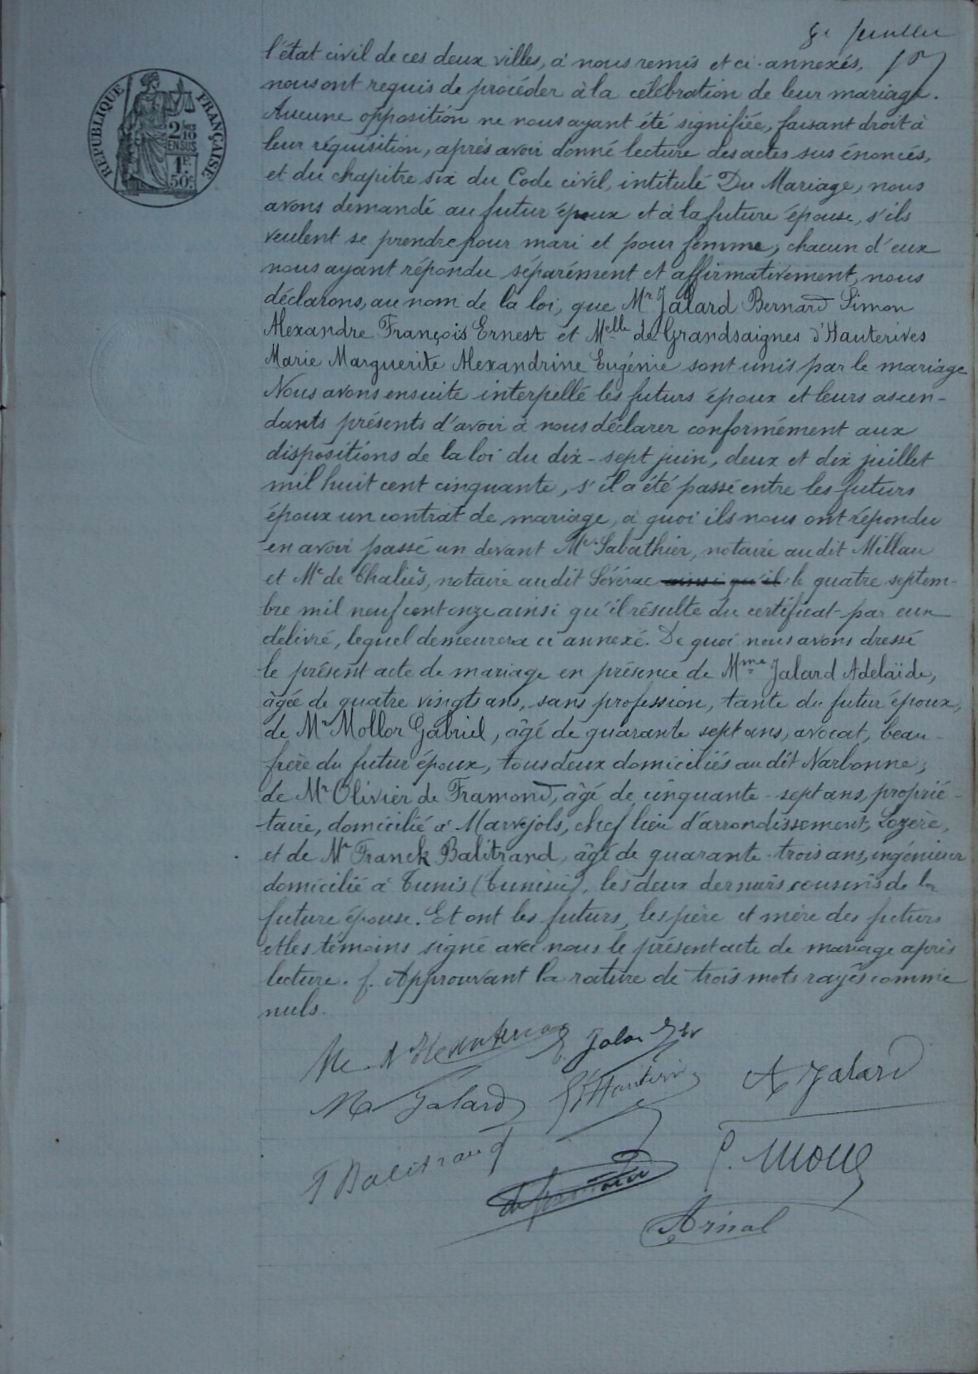 RÉPUBLIQUE FRANÇAISE
2/10
EN SUS
1F
50c
l'état civil de ces deux villes, à nous remis et ci-annexés,
nous ont requis de procéder à la célébration de leur mariage.
Aucune opposition ne nous ayant été signifiée, faisant droit à
leur réquisition, après avoir donné lecture des actes sus énoncés,
et du chapitre six du Code civil, intitulé Du Mariage, nous
avons demandé au futur époux et à la future épouse, s'ils
veulent se prendre pour mari et pour femme, chacun d'eux
nous ayant répondu séparément et affirmativement, nous
déclarons, au nom de la loi, que Mr Jalard Bernard Simon
Alexandre François Ernest et Melle de Grandsaignes d'Hauterives
Marie Marguerite Alexandrine Eugénie sont unis par le mariage
Nous avons ensuite interpellé les futurs époux et leurs ascen-
dants présents d'avoir à nous déclarer conformément aux
dispositions de la loi du dix-sept juin, deux et dix juillet
mil huit cent cinquante, s'il a été passé entre les futurs
époux un contrat de mariage, à quoi ils nous ont répondu
en avoir passé un devant Me Sabathier, notaire audit Millau
et Me de Chaliès, notaire audit Sévérac ainsi qu'il le quatre septem-
bre mil neuf cent onze ainsi qu'il résulte du certificat par eux
délivré, lequel demeurera ci annexé. De quoi nous avons dressé
le présent acte de mariage en présence de Mme Jalard Adelaïde,
âgée de quatre vingts ans, sans profession, tante du futur époux,
de Mr Mollor Gabriel, âgé de quarante sept ans, avocat, beau-
frère du futur époux, tous deux domiciliés audit Narbonne;
de Mr Olivier de Framond, âgé de cinquante-sept ans, proprié-
taire, domicilié à Marvejols, chef lieu d'arrondissement, Lozère,
et de Mr Franck Balitrand, âgé de quarante-trois ans, ingénieur
domicilié à Tunis (Tunisie), les deux derniers cousins de la
future épouse. Et ont les futurs, les père et mère des futurs
et les témoins signé avec nous le présent acte de mariage après
lecture. Approuvant la rature de trois mots rayés comme
nuls.
E. Jalard
M Jalard
A Jalard
F Balitrand
de Framond
Arinal